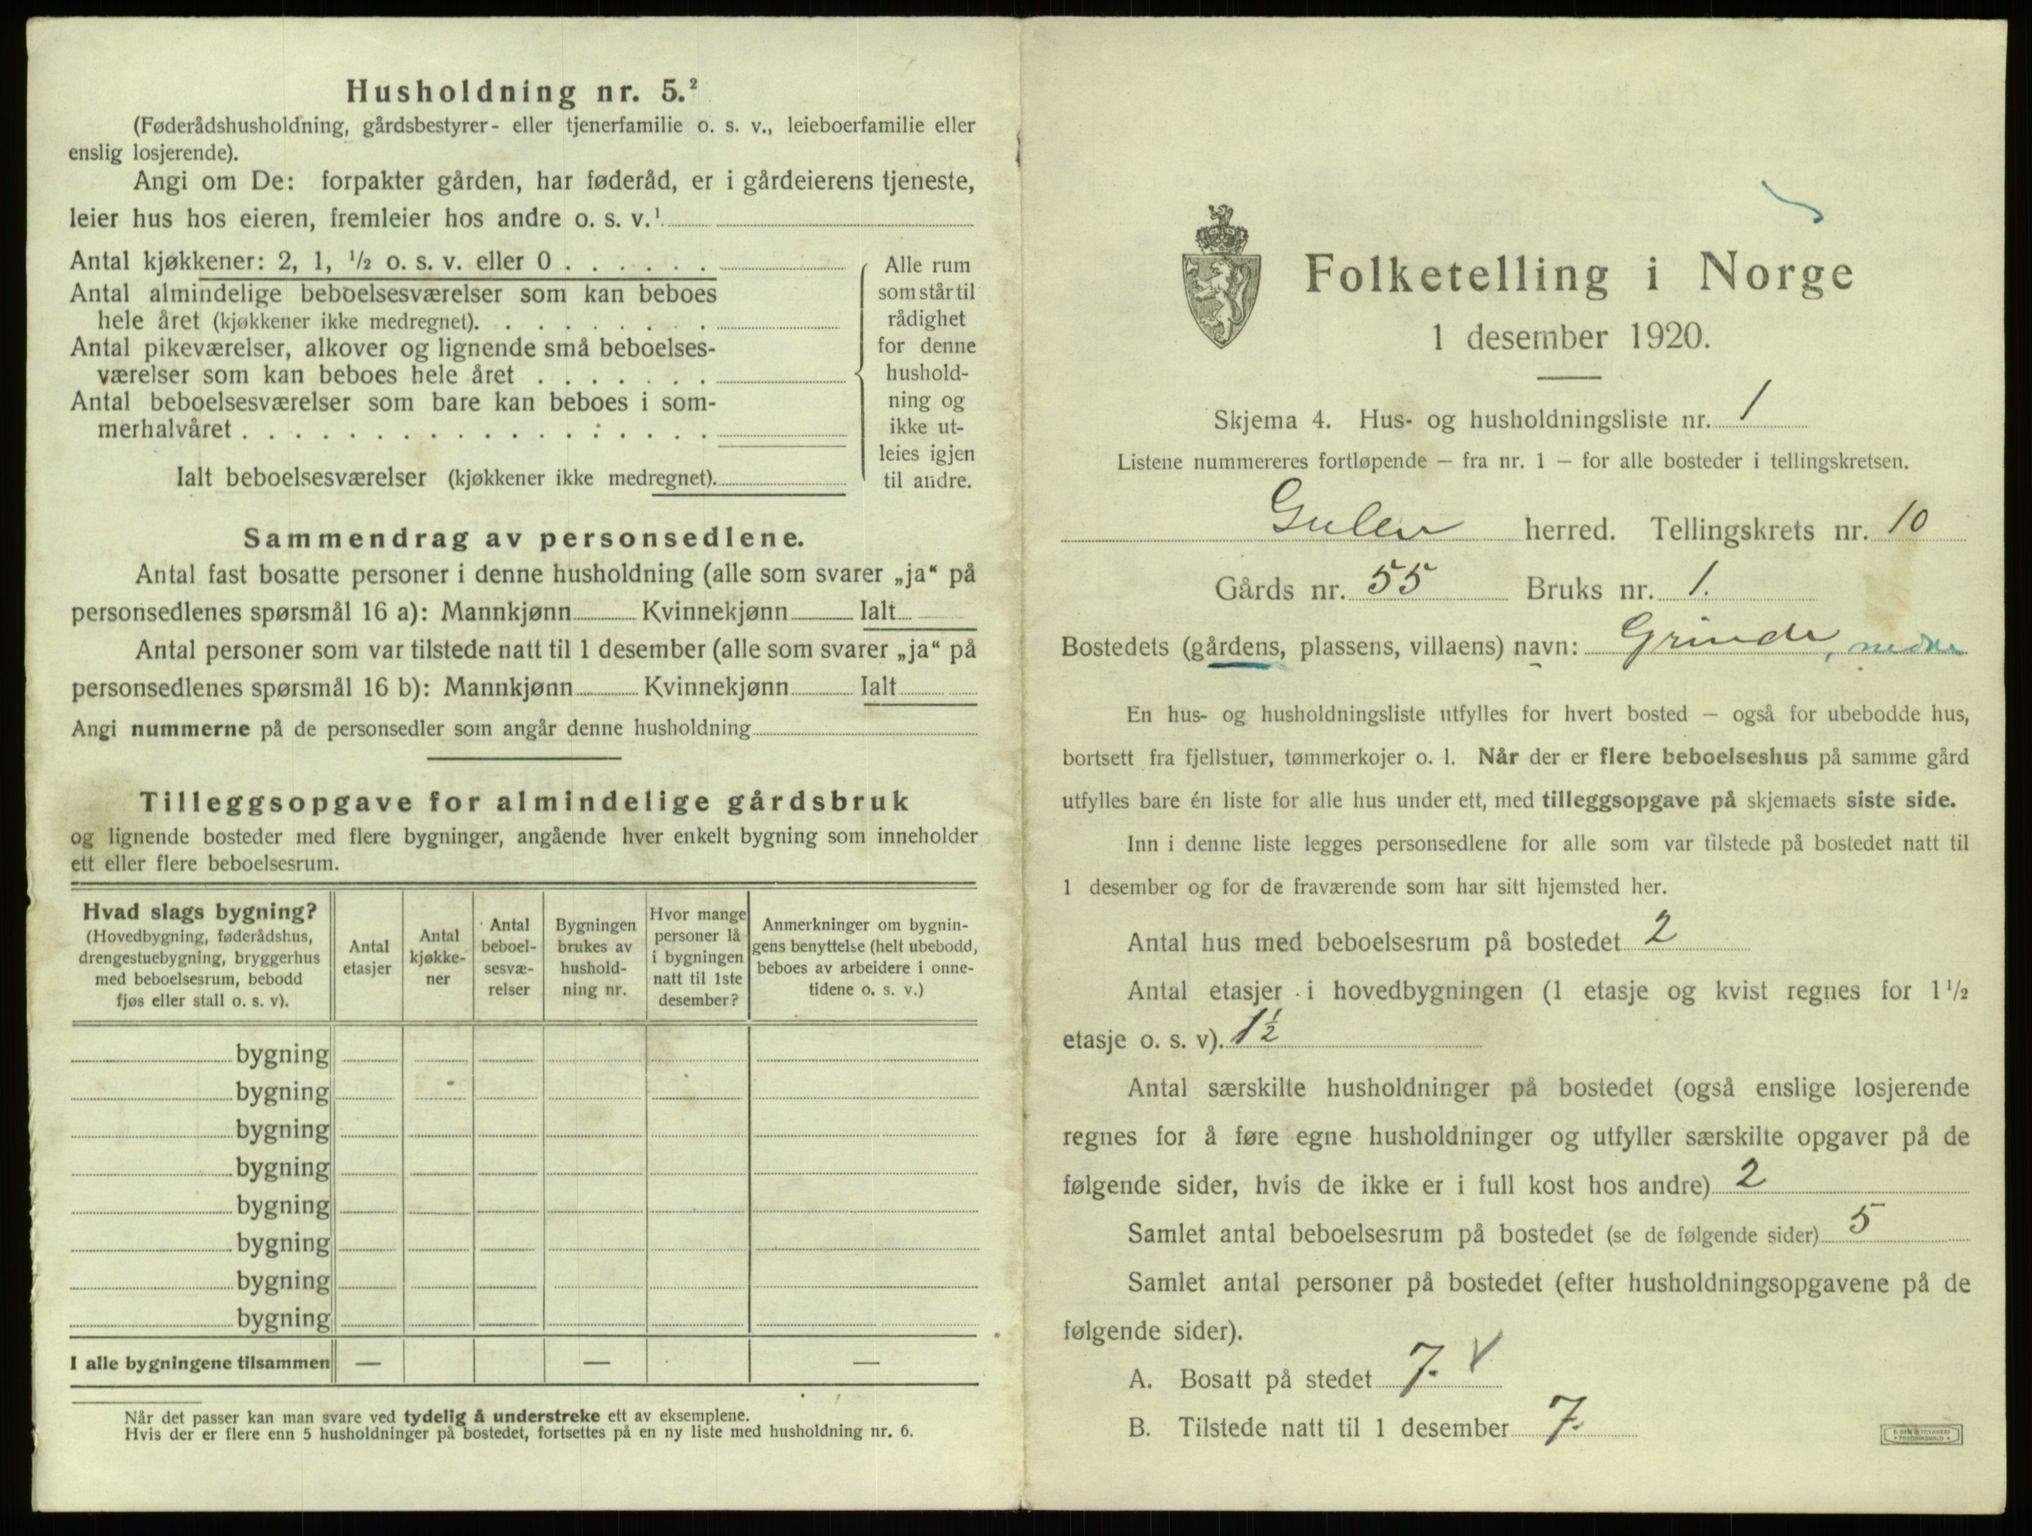 Husholdning nr. 5.²
(Føderådshusholdning, gårdsbestyrer- eller tjenerfamilie o. s. v., leieboerfamilie eller
enslig losjerende).
Angi om De: forpakter gården, har føderåd, er i gårdeierens tjeneste,
leier hus hos eieren, fremleier hos andre o. s. v.¹
Antal kjøkkener: 2, 1, ½ o. s. v. eller 0 . . . . . .
Antal almindelige beboelsesværelser som kan beboes
hele året (kjøkkener ikke medregnet). . . . . . . . .
Antal pikeværelser, alkover og lignende små beboelses-
værelser som kan beboes hele året . . . . . . .
Antal beboelsesværelser som bare kan beboes i som-
merhalvåret . . . . . . . . . . . . . . . . . .
Ialt beboelsesværelser (kjøkkener ikke medregnet).
Alle rum
som står til
rådighet
for denne
hushold-
ning og
ikke ut-
leies igjen
til andre.
Sammendrag av personsedlene.
Antal fast bosatte personer i denne husholdning (alle som svarer „ja“ på
personsedlenes spørsmål 16 a): Mannkjønn Kvinnekjønn Ialt
Antal personer som var tilstede natt til 1 desember (alle som svarer „ja“ på
personsedlenes spørsmål 16 b): Mannkjønn Kvinnekjønn Ialt
Angi nummerne på de personsedler som angår denne husholdning
Tilleggsopgave for almindelige gårdsbruk
og lignende bosteder med flere bygninger, angående hver enkelt bygning som inneholder
ett eller flere beboelsesrum.
Hvad slags bygning?
(Hovedbygning, føderådshus,
drengestuebygning, bryggerhus
med beboelsesrum, bebodd
fjøs eller stall o. s. v).
Antal
etasjer
Antal
kjøkke-
ner
Antal
beboel-
sesvæ-
relser
Bygningen
brukes av
hushold-
ning nr.
Hvor mange
personer lå
i bygningen
natt til 1ste
desember?
Anmerkninger om bygnin-
gens benyttelse (helt ubebodd,
beboes av arbeidere i onne-
tidene o. s. v.)
bygning
bygning
bygning
bygning
bygning
bygning
bygning
bygning
I alle bygningene tilsammen — — —
Når det passer kan man svare ved tydelig å understreke ett av eksemplene.
Hvis der er flere enn 5 husholdninger på bostedet, fortsettes på en ny liste med husholdning nr. 6.
Folketelling i Norge
1 desember 1920.
Skjema 4. Hus- og husholdningsliste nr. 1
Listene nummereres fortløpende — fra nr. 1 — for alle bosteder i tellingskretsen.
Gulen herred. Tellingskrets nr. 10
Gårds nr. 55 Bruks nr. 1.
Bostedets (gårdens, plassens, villaens) navn: Grinde, nedre
En hus- og husholdningsliste utfylles for hvert bosted — også for ubebodde hus,
bortsett fra fjellstuer, tømmerkojer o. l. Når der er flere beboelseshus på samme gård
utfylles bare én liste for alle hus under ett, med tilleggsopgave på skjemaets siste side.
Inn i denne liste legges personsedlene for alle som var tilstede på bostedet natt til
1 desember og for de fraværende som har sitt hjemsted her.
Antal hus med beboelsesrum på bostedet 2
Antal etasjer i hovedbygningen (1 etasje og kvist regnes for 1 ½
etasje o. s. v). 1½
Antal særskilte husholdninger på bostedet (også enslige losjerende
regnes for å føre egne husholdninger og utfyller særskilte opgaver på de
følgende sider, hvis de ikke er i full kost hos andre) 2
Samlet antal beboelsesrum på bostedet (se de følgende sider) 5
Samlet antal personer på bostedet (efter husholdningsopgavene på de
følgende sider).
A. Bosatt på stedet 7. V
B. Tilstede natt til 1 desember 7.